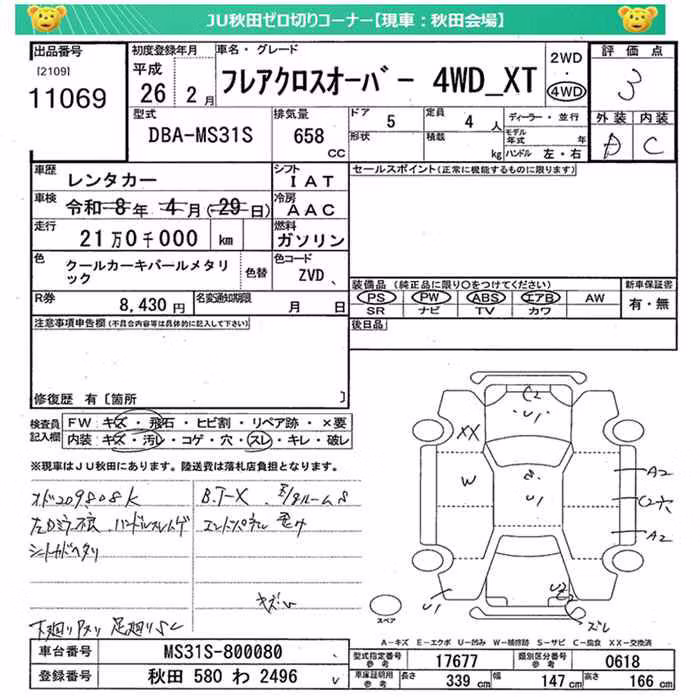 JU秋田ゼロ切りコーナー【現車：秋田会場】
出品番号
[2109]
11069
初度登録年月
平成
26年 2月
車名・グレード
フレアクロスオーバー 4WD_XT
2WD
・
4WD
評価点
3
外装 内装
D C
型式
DBA-MS31S
排気量
658
CC
ドア
5
形状
定員
4人
積載
kg
ディーラー・並行
モデル年式 年
ハンドル 左・右
車歴
レンタカー
シフト
IAT
車検
令和 8年 4月(29日)
冷房
AAC
走行
21万0千000 km
燃料
ガソリン
色
クールカーキパールメタリック
色替
色コード
ZVD
R券
8,430円
名変通知期限
月 日
セールスポイント(正常に機能するものに限ります)
装備品 (純正品に限り○をつけてください)
PS PW ABS エアB AW
SR ナビ TV カワ
新車保証書
有・無
後日品
注意事項申告欄(不具合内容等は具体的に記入して下さい)
修復歴 有[箇所 ]
検査員記入欄
FW キズ・飛石・ヒビ割・リペア跡・×要
内装 キズ・汚レ・コゲ・穴・スレ・キレ・破レ
※現車はJU秋田にあります。陸送費は落札店負担となります。
オド209808K
B.T-X
シートカドヘタリ
キズ
下廻り
足廻り
C2
U1
XX
W
S
U1
A2
C2
A2
U1
ズレ
スペア
A-キズ E-エクボ U-凹み W-補修跡 S-サビ C-腐食 XX-交換済
車台番号
MS31S-800080
登録番号
秋田 580 わ 2496
型式指定番号
参考
17677
類別区分番号
参考
0618
車庫証明用
参考
長さ 339 cm
幅 147 cm
高さ 166 cm